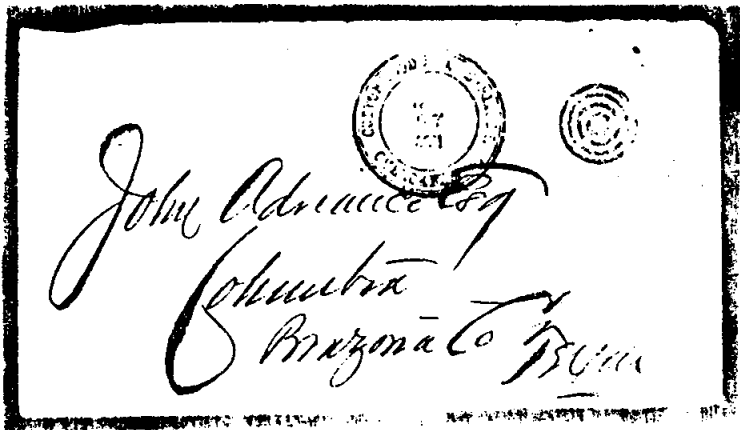 John Adriance Esq
Columbia
Brazoria Co Texas